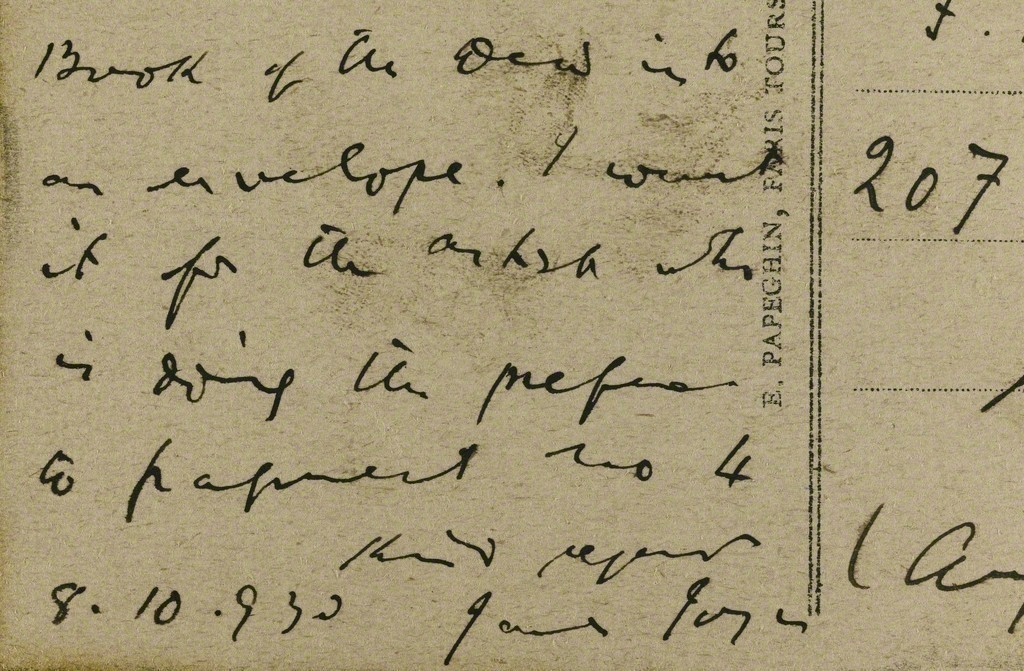 Book of the Dead into
an envelope. I want
it for the artist who
is doing the preface
to fragment no 4
Kind regards
8.10.930 James Joyce
E. PAPEGHIN, PARIS TOURS
207